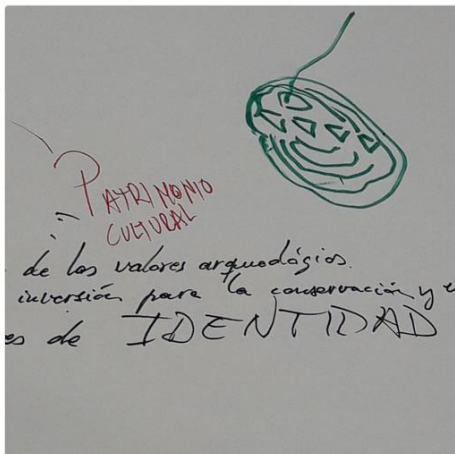 PATRIMONIO
CULTURAL
de los valores arqueológios.
inversión para la conservación y
es de IDENTIDAD